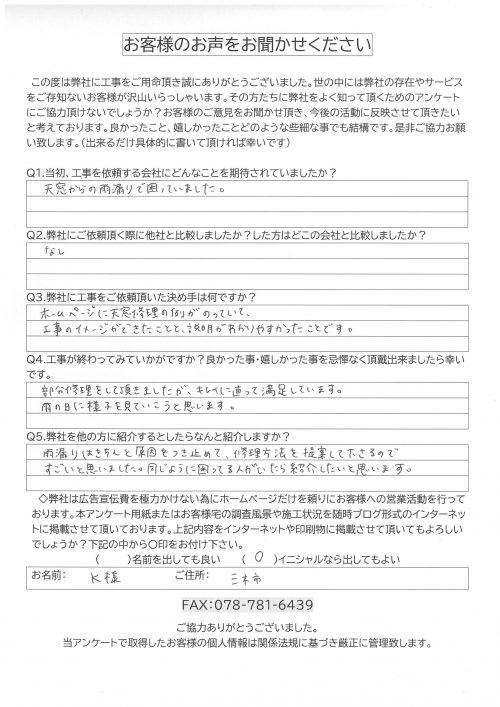 お客様のお声をお聞かせください
この度は弊社に工事をご用命頂き誠にありがとうございました。世の中には弊社の存在やサービス
をご存知ないお客様が沢山いらっしゃいます。その方たちに弊社をよく知って頂くためのアンケート
にご協力頂けないでしょうか？お客様のご意見をお聞かせ頂き、今後の活動に反映させて頂きたい
と考えております。良かったこと、嬉しかったことどのような些細な事でも結構です。是非ご協力お願
い致します。（出来るだけ具体的に書いて頂ければ幸いです）
Q1.当初、工事を依頼する会社にどんなことを期待されていましたか？
天窓からの雨漏りで困っていました。
Q2.弊社にご依頼頂く際に他社と比較しましたか？した方はどこの会社と比較しましたか？
なし
Q3.弊社に工事をご依頼頂いた決め手は何ですか？
ホームページに天窓修理の例がのっていて、
工事のイメージができたことと、説明がわかりやすかったことです。
Q4.工事が終わってみていかがですか？良かった事・嬉しかった事を忌憚なく頂戴出来ましたら幸い
です。
部分修理をして頂きましたが、キレイに直って満足しています。
雨の日に様子を見ていこうと思います。
Q5.弊社を他の方に紹介するとしたらなんと紹介しますか？
雨漏りはきちんと原因をつき止めて、修理方法を提案して下さるので
すごいと思いました。同じように困ってる人がいたら紹介したいと思います。
◇弊社は広告宣伝費を極力かけない為にホームページだけを頼りにお客様への営業活動を行って
おります。本アンケート用紙またはお客様宅の調査風景や施工状況を随時ブログ形式のインターネッ
トに掲載させて頂いております。上記内容をインターネットや印刷物に掲載させて頂いてもよろしい
でしょうか？下記の中から〇印をお付け下さい。
（　　）名前を出しても良い　（ 〇 ）イニシャルなら出してもよい
お名前：　K様　ご住所：　三木市
FAX:078-781-6439
ご協力ありがとうございました。
当アンケートで取得したお客様の個人情報は関係法規に基づき厳正に管理致します。